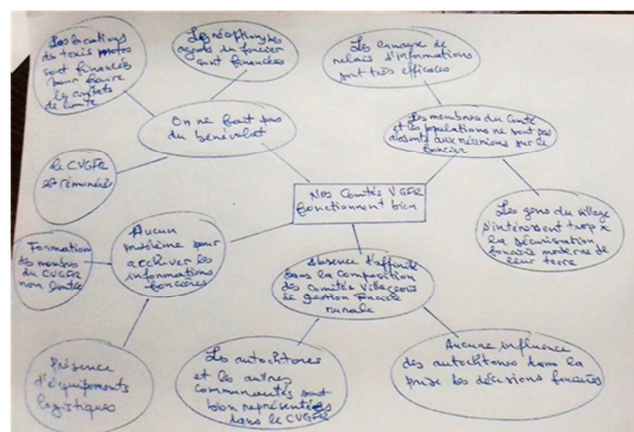 Les locations
des taxis motos
sont financés
pour faire
les constats
de limite
Les réceptions des
agents du foncier
sont financées
Les canaux de
relais d'informations
sont très efficaces
On ne fait pas
du bénévolat
Les membres du Comité
et les populations ne sont pas
absents aux réunions sur le
foncier
le CVGFR
est rémunéré
Nos Comités VGFR
fonctionnent bien
Les gens du village
s'intéressent trop à
la sécurisation
foncière moderne de
leur terre
Aucun
problème pour
archiver les
informations
foncières
Formation
des membres
du CVGFR
non limitée
Absence d'affinité
dans la composition
des Comités Villageois
de gestion Foncière
rurale
Présence
d'équipements
logistiques
Les autochtones
et les autres
communautés sont
bien représentées
dans le CVGFR
Aucune influence
des autochtones dans la
prise des décisions foncières